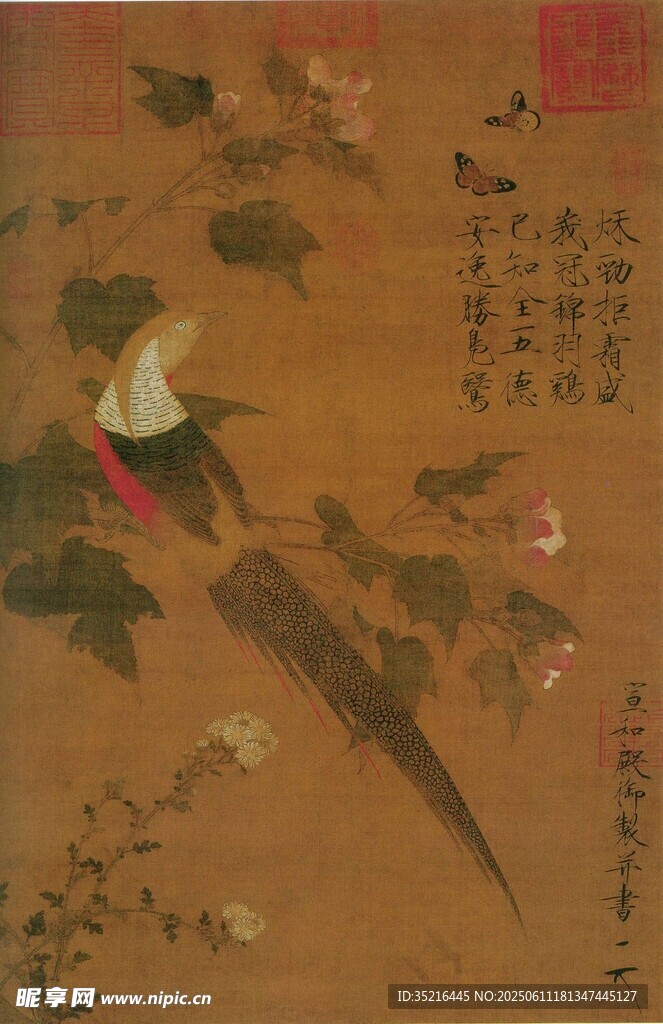 秌勁拒霜盛
峩冠錦羽鷄
已知全五德
安逸勝鳧鷖
宣和殿御製并書
昵享网 www.nipic.cn
ID:35216445 NO:20250611181347445127